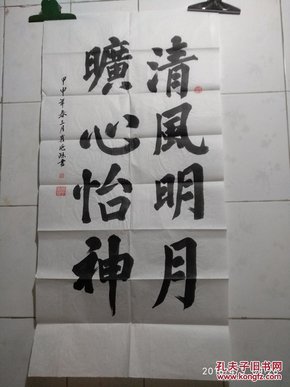 清风明月
曠心怡神
甲申年春三月
孔夫子旧书网